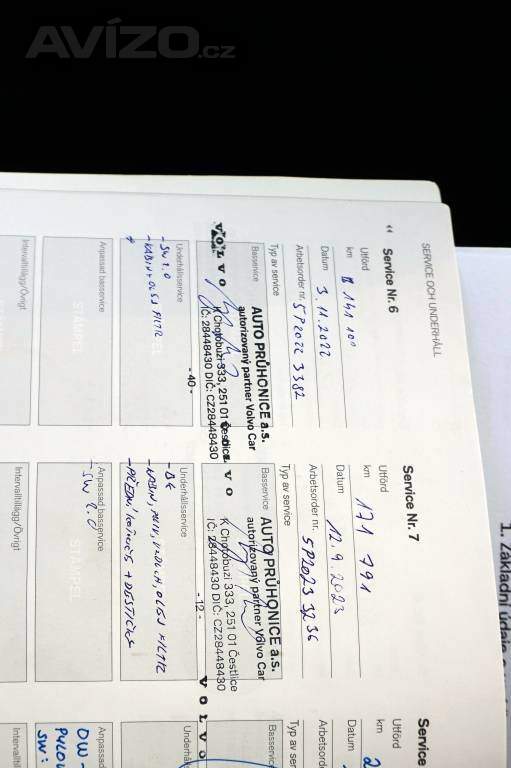 AVÍZO.cz
SERVICE OCH UNDERHÅLL
“ Service Nr. 6
Utförd
km 141 100
Datum 3.11.2022
Arbetsorder nr. SP2022 3382
Typ av service
Basservice
AUTO PRŮHONICE a.s.
autorizovaný partner Volvo Car
K Chotobuzi 333, 251 01 Čestlice
IČ: 28448430 DIČ: CZ28448430
- 40 -
VOLVO
Underhållsservice
- SW 2.0
- KABIN + OLEJ FILTR
STÄMPEL
Anpassad basservice
STÄMPEL
Intervalltillägg/Övrigt
Service Nr. 7
Utförd
km 171 791
Datum 12.9.2023
Arbetsorder nr. SP2023 3236
Typ av service
Basservice
AUTO PRŮHONICE a.s.
autorizovaný partner Volvo Car
K Chotobuzi 333, 251 01 Čestlice
IČ: 28448430 DIČ: CZ28448430
- 12 -
VOLVO
Underhållsservice
- KABIN, VZDUCH, OLEJ FILTR
- PŘEDNÍ KOTOUČE + DESTIČKY
Anpassad basservice
- SW 2.0
STÄMPEL
Intervalltillägg/Övrigt
Service
Utförd
km 2
Datum
Arbetsord
Typ av ser
Basservic
VOLVO
Underhå
Anpassad
OW-
PYLOV
SW:
Intervallti
1. Základní údaje